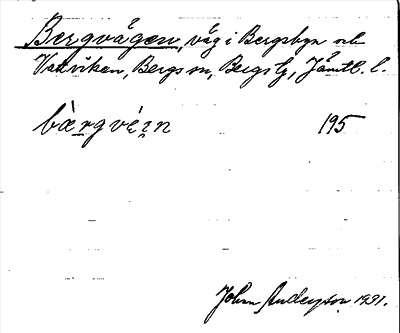 Bergvågen, våg i Bergsbyn och
Vattviken, Bergs sn, Bergs tg, Jämtl. l.
bàrgvé̀ın 195
John Anderson 1931.